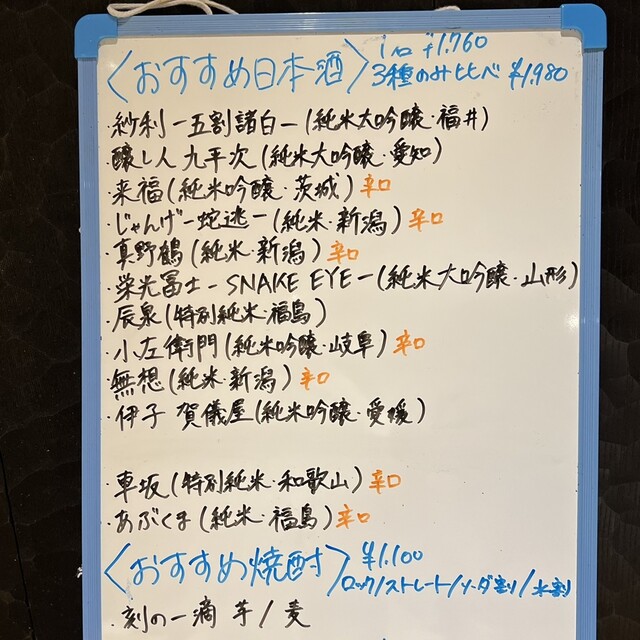 〈おすすめ日本酒〉 1合 ¥1,760
3種のみ比べ ¥1,980
・紗利 ー五割諸白ー (純米大吟醸・福井)
・醸し人 九平次 (純米大吟醸・愛知)
・来福 (純米吟醸・茨城) 辛口
・じゃんげ ー蛇逃ー (純米・新潟) 辛口
・真野鶴 (純米・新潟) 辛口
・栄光冨士 ー SNAKE EYE ー (純米大吟醸・山形)
・辰泉 (特別純米・福島)
・小左衛門 (純米吟醸・岐阜) 辛口
・無想 (純米・新潟) 辛口
・伊予 賀儀屋 (純米吟醸・愛媛)
・車坂 (特別純米・和歌山) 辛口
・あぶくま (純米・福島) 辛口
〈おすすめ焼酎〉 ¥1,100
ロック/ストレート/ソーダ割/水割
・刻の一滴 芋/麦